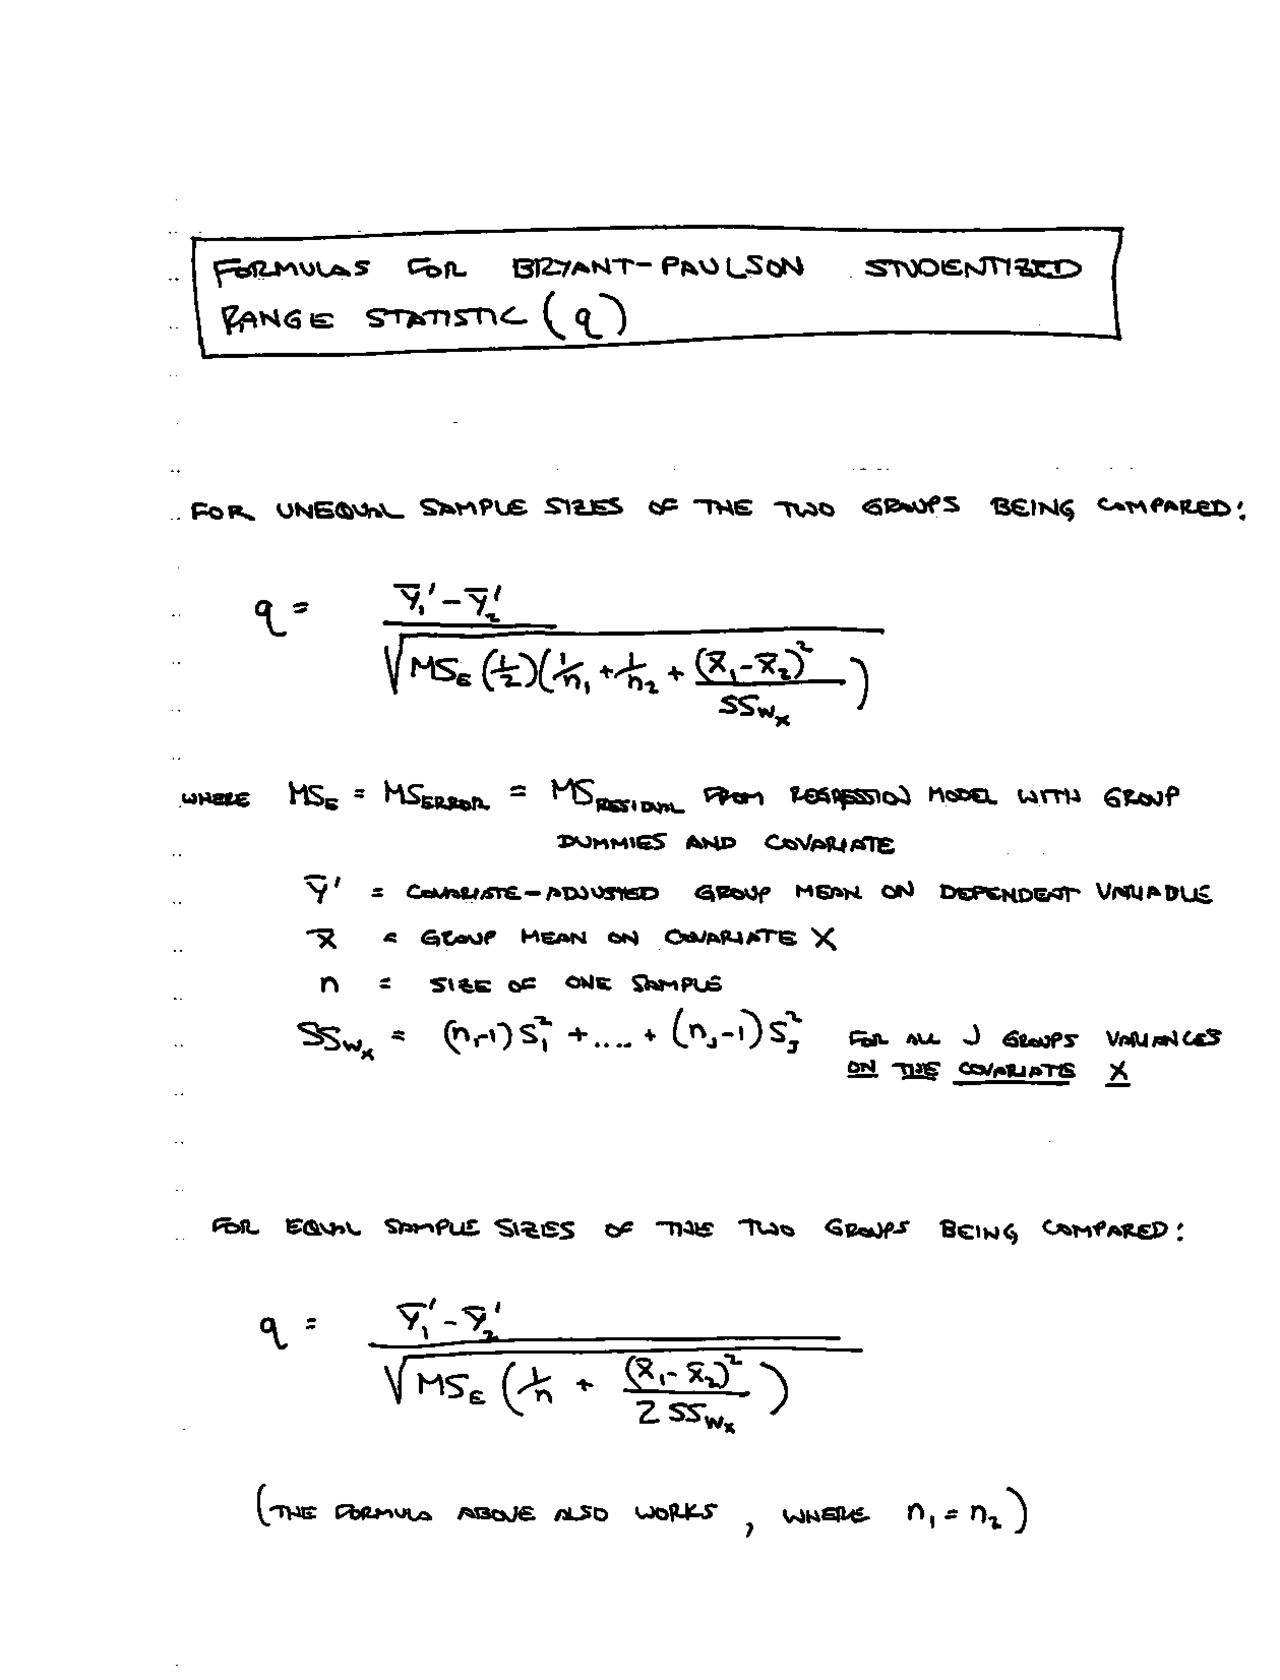 FORMULAS FOR BRYANT-PAULSON STUDENTIZED
RANGE STATISTIC (q)
FOR UNEQUAL SAMPLE SIZES OF THE TWO GROUPS BEING COMPARED:
q = (Ȳ₁' - Ȳ₂') / √(MS_E (1/2)(1/n₁ + 1/n₂ + (X̄₁ - X̄₂)² / SS_Wx))
WHERE MS_E = MS_ERROR = MS_RESIDUAL FROM REGRESSION MODEL WITH GROUP
DUMMIES AND COVARIATE
Ȳ' = COVARIATE-ADJUSTED GROUP MEAN ON DEPENDENT VARIABLE
X̄ = GROUP MEAN ON COVARIATE X
n = SIZE OF ONE SAMPLE
SS_Wx = (n₁-1) S₁² + .... + (n_J-1) S_J² FOR ALL J GROUPS VARIANCES
ON THE COVARIATE X
FOR EQUAL SAMPLE SIZES OF THE TWO GROUPS BEING COMPARED:
q = (Ȳ₁' - Ȳ₂') / √(MS_E (1/n + (X̄₁ - X̄₂)² / 2 SS_Wx))
(THE FORMULA ABOVE ALSO WORKS, WHERE n₁ = n₂)